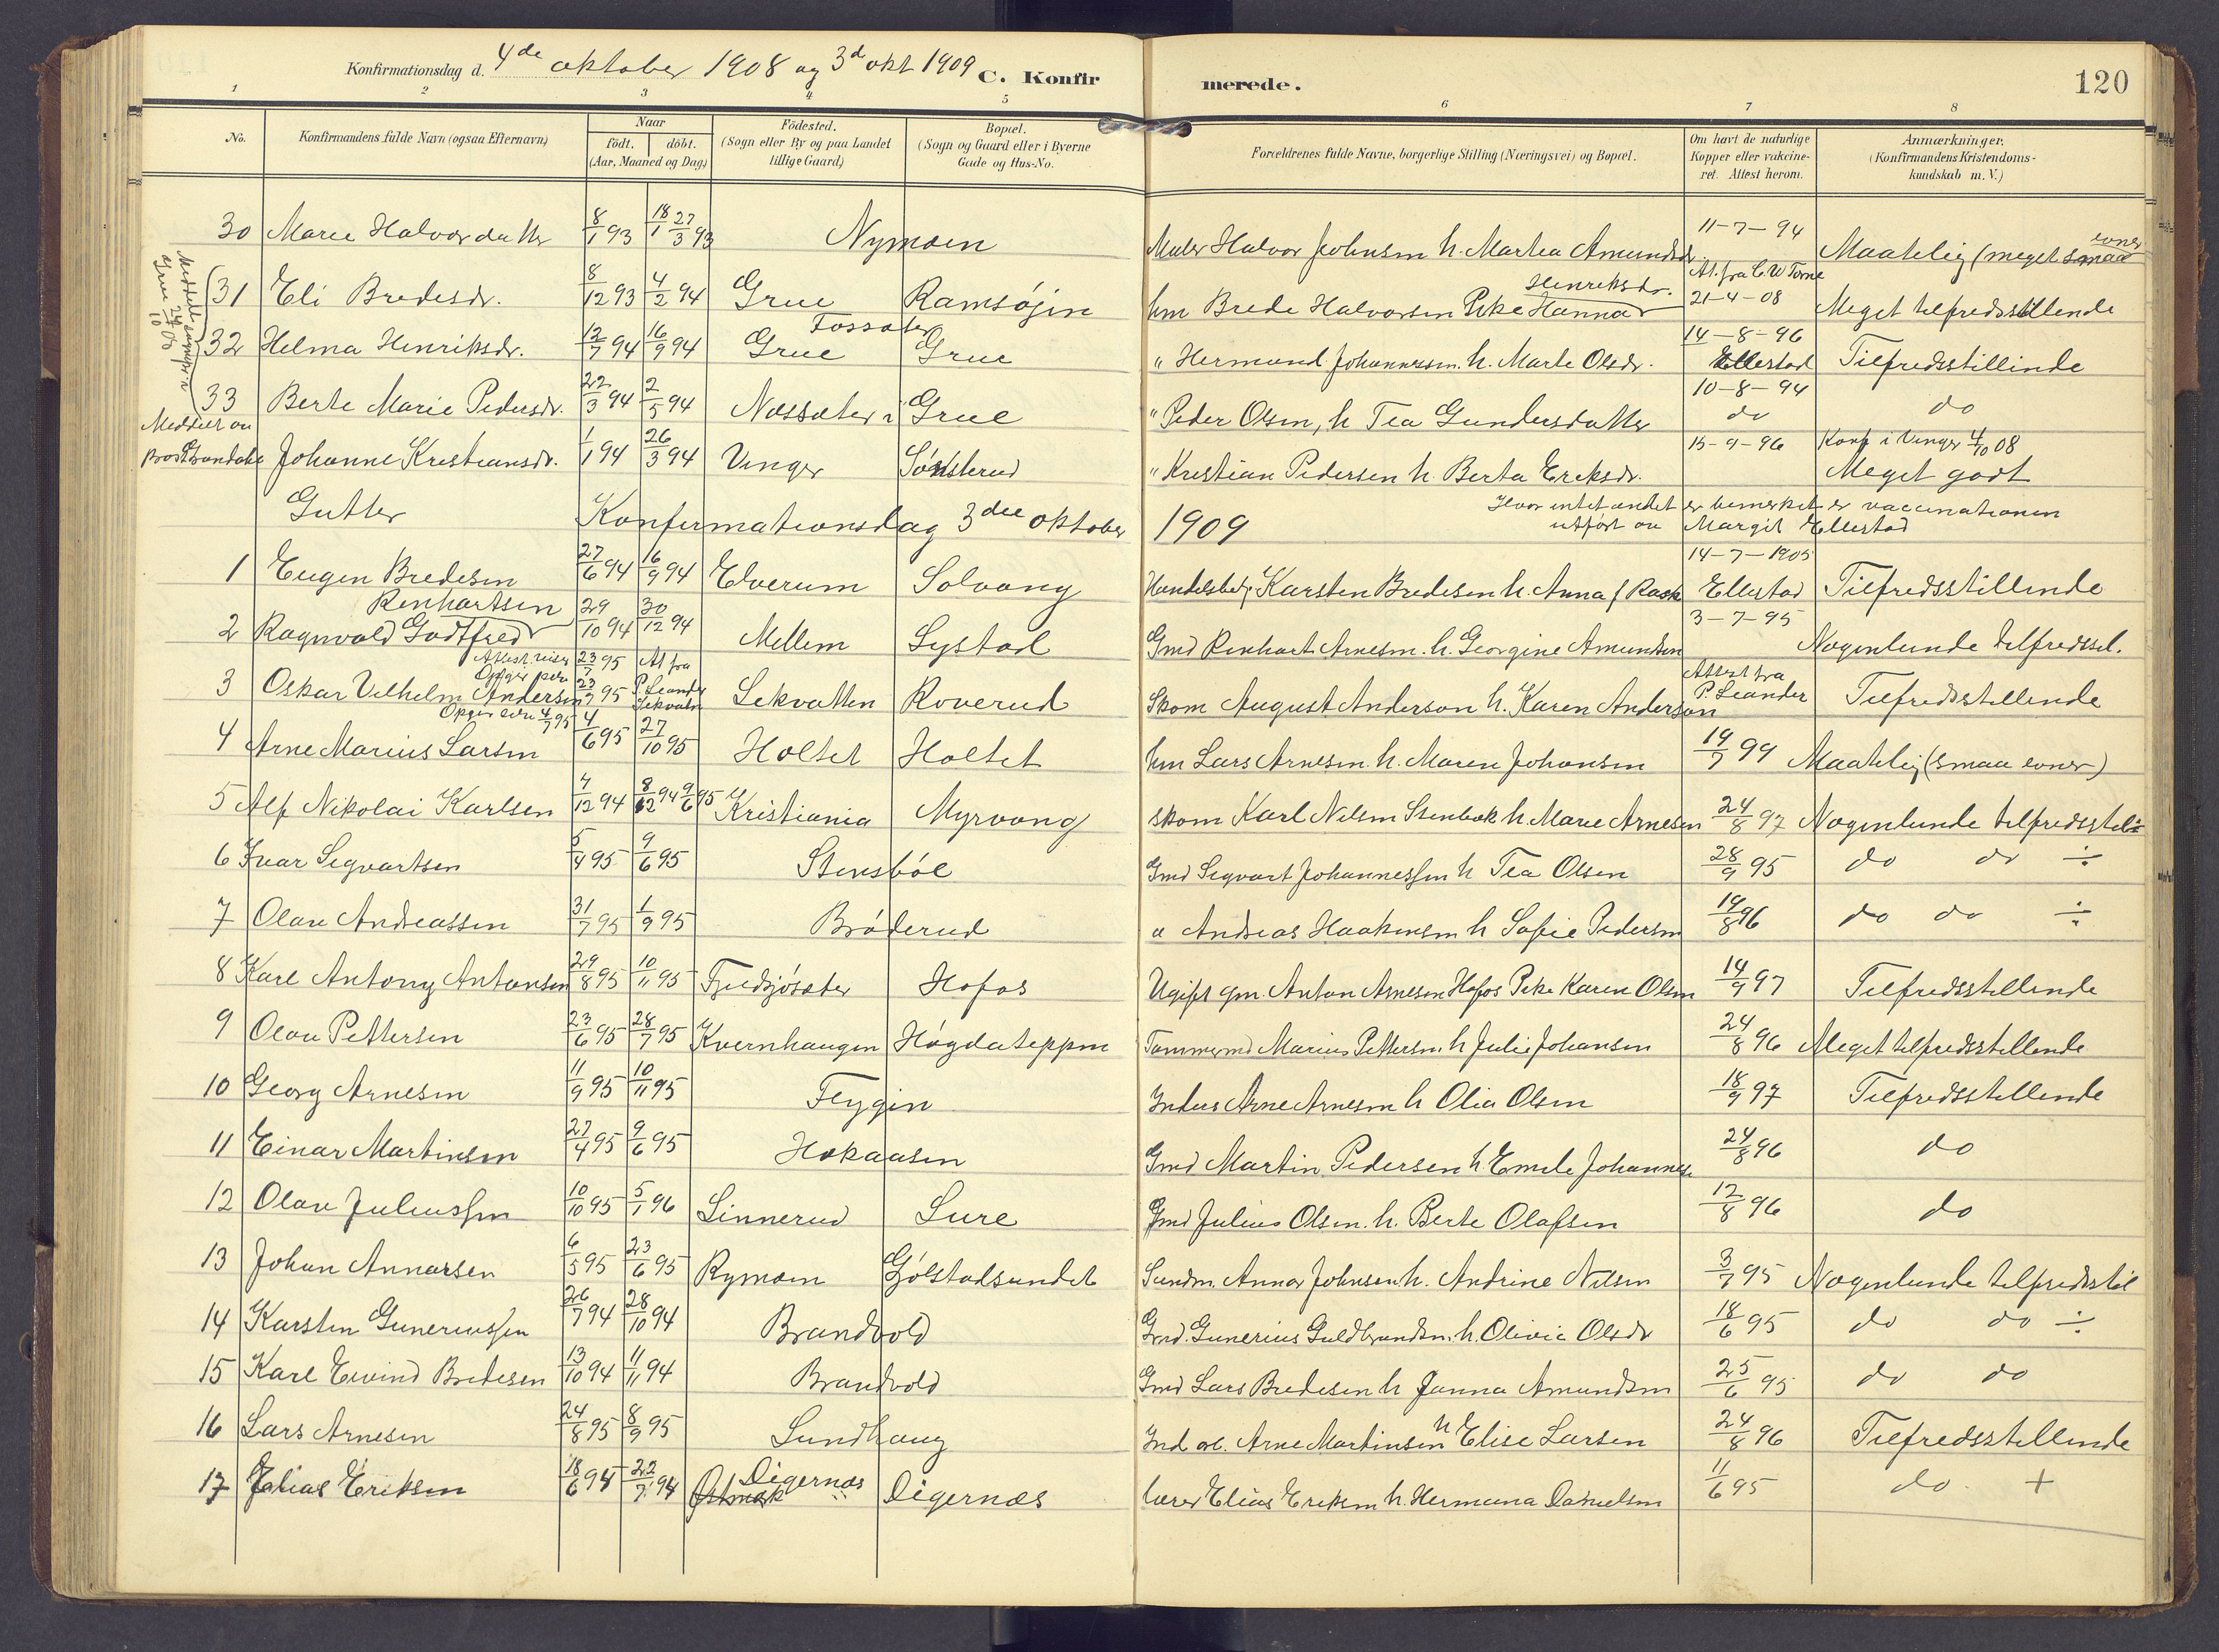 Konfirmationsdag d. 4de oktober 1908 og 3d okt 1909 C. Konfirmerede. 120
1 2 3 4 5 6 7 8
No. Konfirmandens fulde Navn (ogsaa Efternavn) Naar födt. döbt. (Aar, Maaned og Dag) Födested. (Sogn eller By og paa Landet tillige Gaard) Bopæl. (Sogn og Gaard eller i Byerne Gade og Hus-No. Forældrenes fulde Navne, borgerlige Stilling (Næringsvei) og Bopæl. Om havt de naturlige Kopper eller vakcineret. Attest herom. Anmærkninger. (Konfirmandens Kristendomskundskab m. V.)
30 Marie Halvorsdatter 8/1 93 18/1 27/3 93 Nymoen Maler Halvor Johnsen h. Martea Amundsdr. 11-7-94 Maatelig (meget smaa evner
31 Eli Bredesdr. 8/12 93 4/2 94 Grue Ramsøjen hm Brede Halvorsen Pike Hanna Henriksdr. At. fra C. W Torne 21-4-08 Meget tilfredsstillende
32 Helma Henriksdr. 12/7 94 16/9 94 Grue Fossæter Grue " Hermand Johannessen. h. Marte Olsdr. 14-8-96 Ellestad Tilfredsstillende
33 Berte Marie Pedersdr. 22/3 94 2/5 94 Næssæter i Grue " Peder Olsen, h Tea Gundersdatter 10-8-94 do do
Johanne Kristiansdr. 1/1 94 26/3 94 Vinger Sønsterud " Kristian Pedersen h. Berta Eriksdr. 15-9-96 Konf i Vinger 4/10 08 Meget godt
Gutter Konfirmationsdag 3die oktober 1909 Hvor intet andet er bemerket er vaccinationen utført av Margit Ellestad
1 Eugen Bredesen 27/6 94 16/9 94 Elverum Solvang Handelsbetj. Karsten Bredesen h. Anna f Rask 14-7-1905 Ellestad Tilfredsstillende
2 Ragnvald Godtfred Renhartsen 29/10 94 30/12 94 Mellem Systad Gmd Renhart Arnesen. h. Georgine Amundsen 3-7-95 Nogenlunde tilfredsst.
3 Oskar Vilhelm Andersen Attest. viser 23/7 95 At fra P. Leander Lekvatn Lekvatten Roverud Skom August Anderson h. Karen Anderson Attest fra P. Leander Tilfredsstillende
4 Arne Marius Larsen 4/6 95 27/10 95 Holtet Holtet hm Lars Arnesen. h. Maren Johansen 19/7 99 Maatelig (smaa evner)
5 Alf Nikolai Karlsen 4/12 94 8/12 94 9/6 95 Kristiania Myrvang skom Karl Nilsen Stenbæk h. Marie Arnesen 24/8 97 Nogenlunde tilfredsstil÷
6 Ivar Segvartsen 5/4 95 9/6 95 Stensbøl Gmd Segvart Johannessen h Tea Olsen 28/9 95 do do ÷
7 Olav Andreassen 31/7 95 1/9 95 Brøderud " Andreas Haakensen h Sofie Pedersen 19/8 96 do do ÷
8 Karl Antony Antonsen 29/8 95 10/11 95 Fjeldsjøsæter Hofos Ugift gm. Anton Arnesen Hofos Pike Karen Olsen 14/9 97 Tilfredsstillende
9 Olav Pettersen 23/6 95 28/7 95 Kvernhaugen Høgdateppen Tømmermd Marius Pettersen. h Julie Johansen 24/8 96 Meget tilfredsstillende
10 Georg Arnesen 11/9 95 10/11 95 Flygin Inders Arne Arnesen h Olia Olsen 18/9 97 Tilfredsstillende
11 Einar Martinsen 27/4 95 9/6 95 Hokaasen Gmd Martin Pedersen h. Emele Johannes 24/8 96 do
12 Olav Juliussen 10/10 95 5/1 96 Linnerud Lure Gmd Julius Olsen. h. Berte Olafsen 12/8 96 do
13 Johan Annarsen 6/5 95 23/6 95 Rymoen Gjølstadsundet Sundm. Annar Johnsen h. Andrine Nilsen 3/7 95 Nogenlunde tilfredsstil
14 Karsten Gunerinssen 26/7 94 28/10 94 Brandvold Gmd. Gunerius Guldbrandsen. h. Olivia Olsdr 18/6 95 do do ÷
15 Karl Eivind Bredesen 13/10 94 11/11 94 Brandvold Gmd Lars Bredesen h Janna Amundsen 25/6 95 do do
16 Lars Arnesen 24/8 95 8/9 95 Sundhaug Ind. Arne Martinsen h Elise Larsen 24/8 96 Tilfredsstillende
17 Elias Eriksen 18/6 94 22/7 94 Digernæs Digernæs lærer Elias Eriksen h. Hermana Danielsen 11/6 95 do. +